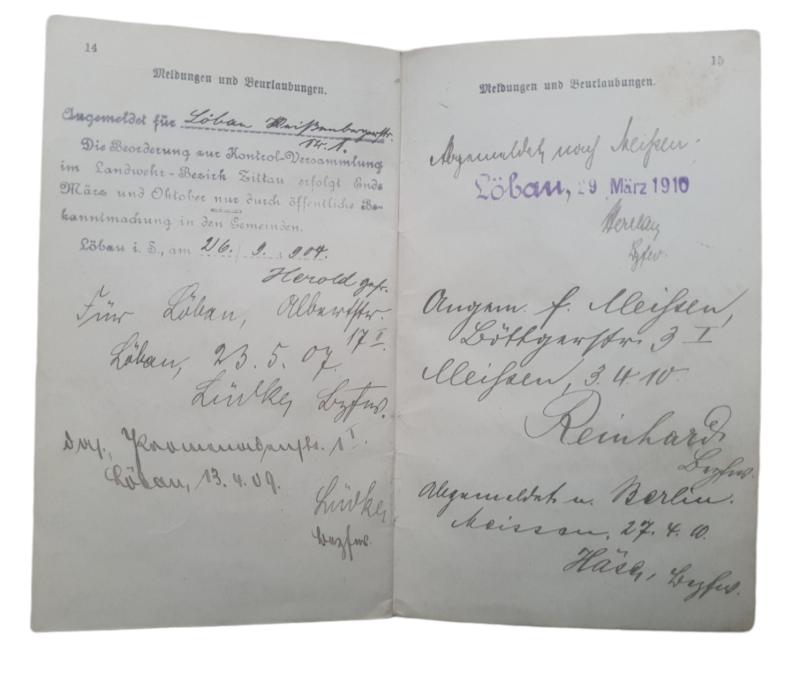 14
Meldungen und Beurlaubungen.
Angemeldet für Löbau Weißenbergerstr.
Nr. 1.
Die Beorderung zur Kontrol-Versammlung
im Landwehr-Bezirk Zittau erfolgt Ende
März und Oktober nur durch öffentliche Be-
kanntmachung in den Gemeinden.
Löbau i. S., am 26. 9. 904.
Herold gefr.
Für Löbau, Albertstr.
17 I.
Löbau, 23. 5. 07.
Lüdke, Bzfw.
Promenadenstr. 1 I.
Löbau, 13. 4. 09.
Lüdke,
Bezfw.
15
Meldungen und Beurlaubungen.
Abgemeldet nach Meißen.
Löbau, 29 März 1910
Bzfw.
Angem. f. Meissen,
Böttgerstr. 3 I
Meissen, 3. 4. 10.
Reinhard
Bezfw.
Abgemeldet n. Berlin.
Meissen, 27. 4. 10.
Häse, Bezfw.